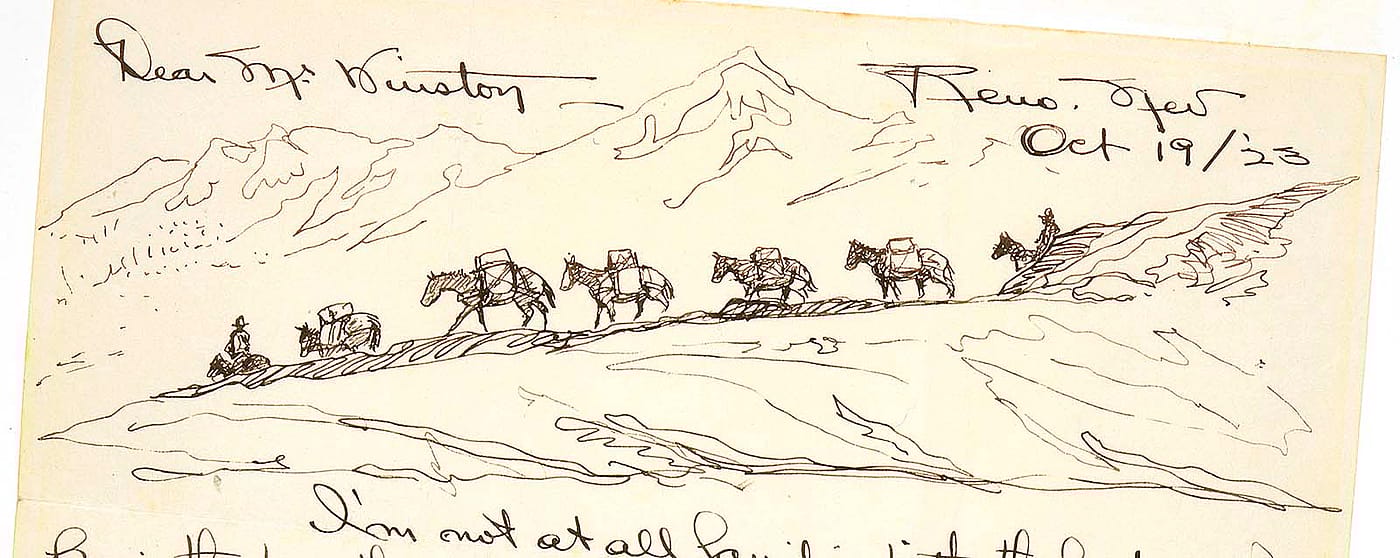 Dear Mr Winston —
Reno. Nev
Oct 19/'23
I'm not at all familiar with the